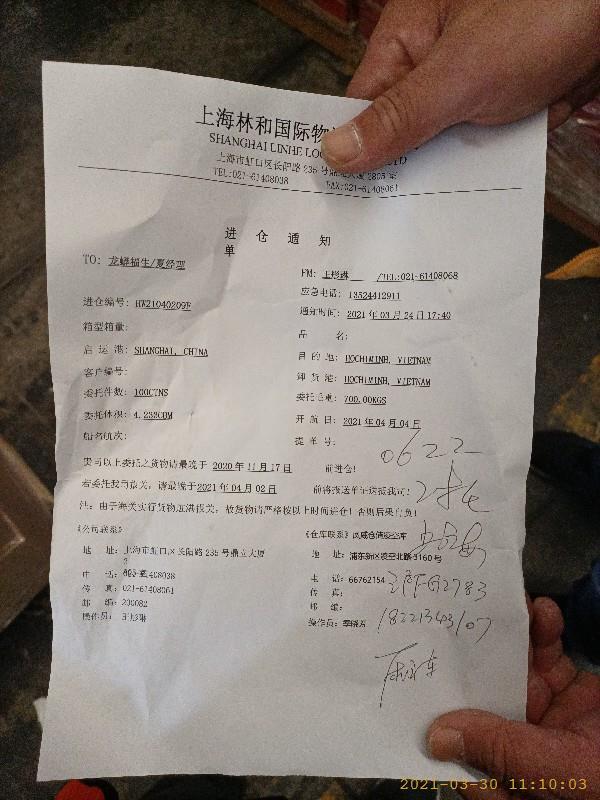 上海林和国际物
SHANGHAI LINHE LO TD
上海市虹口区长阳路 235 号
TEL:021-61408038 FAX:021-61408061
进 仓 通 知
单
TO: 龙蟒福生/夏经理
FM: 王彤琳 /TEL:021-61408068
应急电话: 13524412911
进仓编号: HW21040209F
通知时间: 2021 年 03 月 24 日 17:40
箱型箱量:
品 名:
启 运 港: SHANGHAI, CHINA
目 的 地: HOCHIMINH, VIETNAM
客户编号:
卸 货 港: HOCHIMINH, VIETNAM
委托件数: 100CTNS
委托毛重: 700.00KGS
委托体积: 4.233CBM
开 航 日: 2021 年 04 月 04 日
船名航次:
提 单 号:
0622
贵司以上委托之货物请最晚于 2020 年 11 月 17 日 前进仓!
若委托我司报关, 请最晚于2021 年 04 月 02 日 前将报送单证送抵我司!
注: 由于海关实行货物运抵报关, 故货物请严格按以上时间进仓! 否则后果自负!
《公司联系》
《仓库联系》
地 址: 上海市虹口区长阳路 235 号鼎立大厦
地 址: 浦东新区凌空北路 3160 号
电 话: 408038
电 话: 66762154
传 真: 021-61408061
传 真:
邮 编: 200082
邮 编:
操作员: 王彤琳
操作员: 季晓东
18221343107
2021-03-30 11:10:03